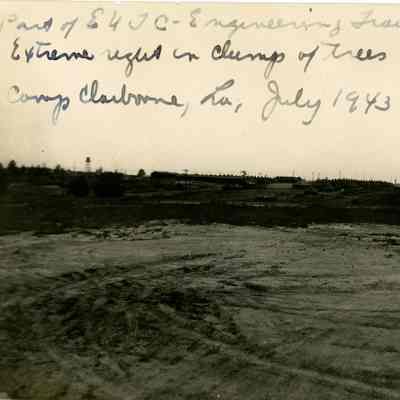 Part of E U T C - Engineering
Extreme right in clump of trees
Camp Claiborne, La, July 1943